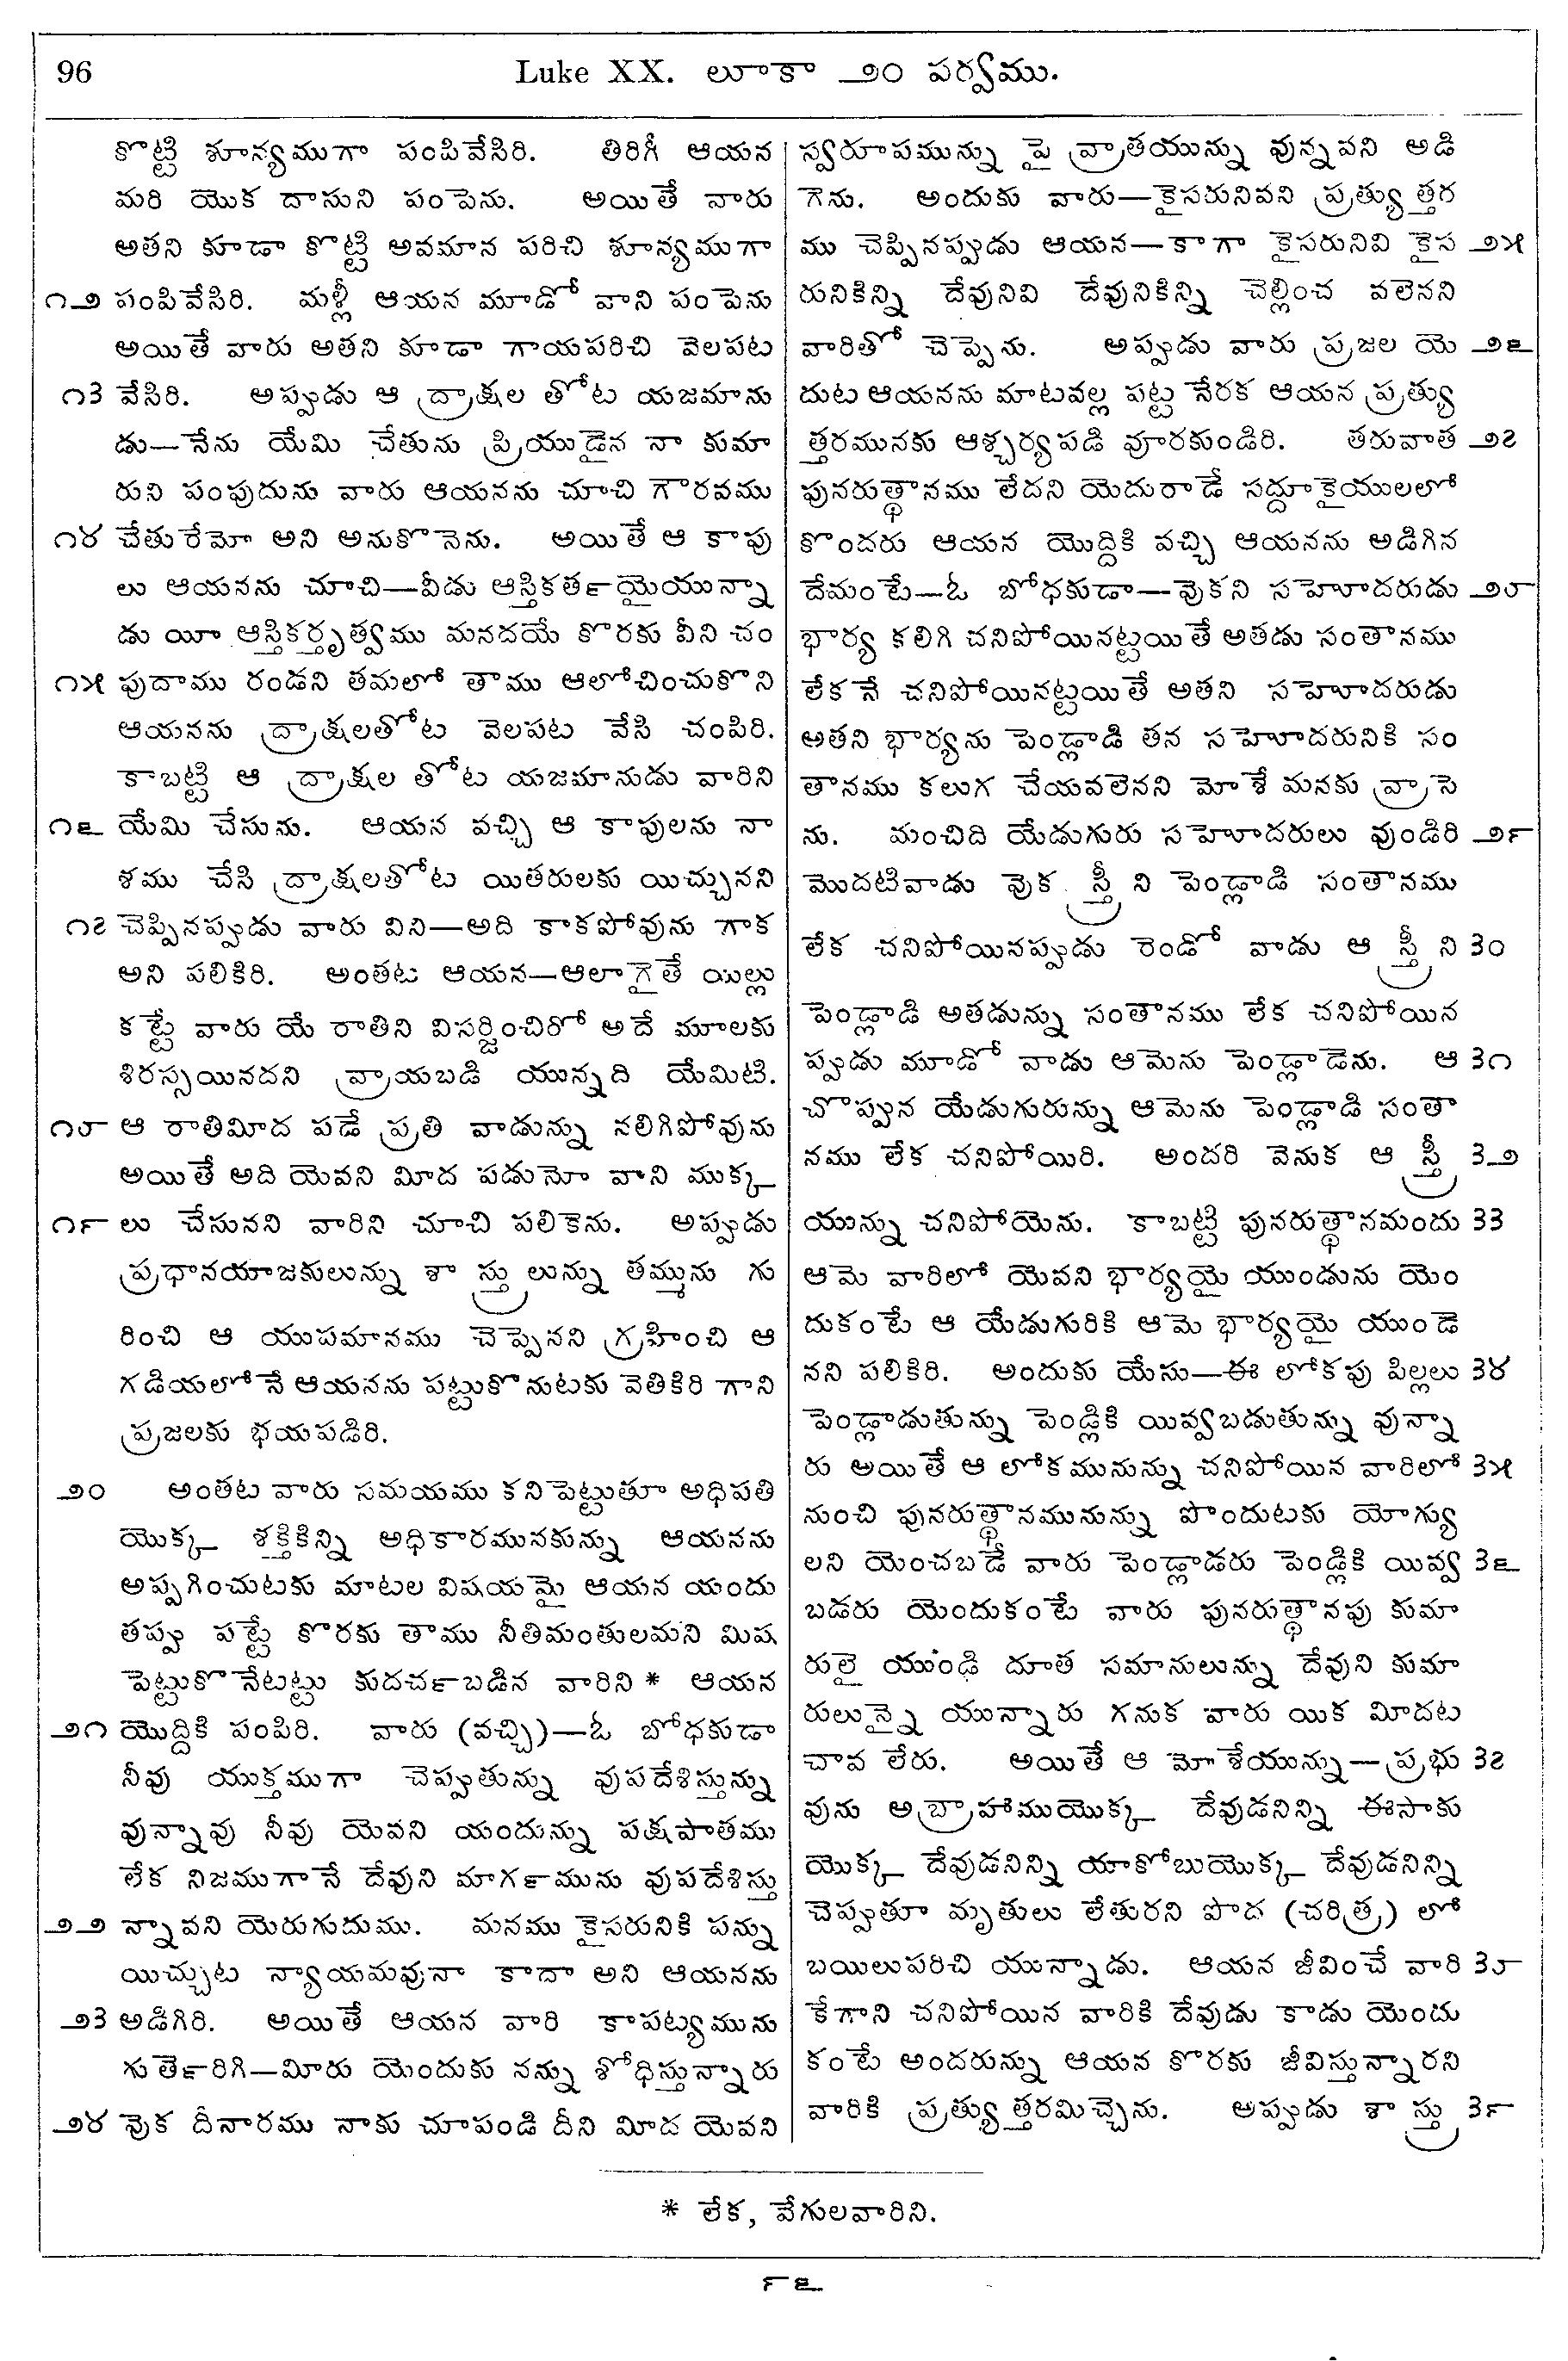 96
Luke XX. లూకా ౨౦ పర్వము.
కొట్టి శూన్యముగా పంపివేసిరి. తిరిగీ ఆయన
మరి యొక దాసుని పంపెను. అయితే వారు
అతని కూడా కొట్టి అవమాన పరిచి శూన్యముగా
౧౨ పంపివేసిరి. మళ్లీ ఆయన మూడో వాని పంపెను
అయితే వారు అతని కూడా గాయపరిచి వెలపట
౧3 వేసిరి. అప్పుడు ఆ ద్రాక్షల తోట యజమాను
డు—నేను యేమి చేతును ప్రియుడైన నా కుమా
రుని పంపుదును వారు ఆయనను చూచి గౌరవము
౧౪ చేతురేమో అని అనుకొనెను. అయితే ఆ కాపు
లు ఆయనను చూచి—వీడు ఆస్తికతర్‍యైయున్నా
డు యీ ఆస్తికర్తృత్వము మనదయే కొరకు వీని చం
౧౫ పుదాము రండని తమలో తాము ఆలోచించుకొని
ఆయనను ద్రాక్షలతోట వెలపట వేసి చంపిరి.
కాబట్టి ఆ ద్రాక్షల తోట యజమానుడు వారిని
౧౬ యేమి చేసును. ఆయన వచ్చి ఆ కాపులను నా
శము చేసి ద్రాక్షలతోట యితరులకు యిచ్చునని
౧౭ చెప్పినప్పుడు వారు విని—అది కాకపోవును గాక
అని పలికిరి. అంతట ఆయన—ఆలాగైతే యిల్లు
కట్టే వారు యే రాతిని విసర్జించిరో అదే మూలకు
శిరస్సయినదని వ్రాయబడి యున్నది యేమిటి.
౧౮ ఆ రాతిమీద పడే ప్రతి వాడున్ను నలిగిపోవును
అయితే అది యెవని మీద పడునో వాని ముక్క
౧౯ లు చేసునని వారిని చూచి పలికెను. అప్పుడు
ప్రధానయాజకులున్ను శాస్త్రులున్ను తమ్మును గు
రించి ఆ యుపమానము చెప్పెనని గ్రహించి ఆ
గడియలోనే ఆయనను పట్టుకొనుటకు వెతికిరి గాని
ప్రజలకు భయపడిరి.
౨౦ అంతట వారు సమయము కనిపెట్టుతూ అధిపతి
యొక్క శక్తికిన్ని అధికారమునకున్ను ఆయనను
అప్పగించుటకు మాటల విషయమై ఆయన యందు
తప్పు పట్టే కొరకు తాము నీతిమంతులమని మిష
పెట్టుకొనేటట్టు కుదచర్‍బడిన వారిని * ఆయన
౨౧ యొద్దికి పంపిరి. వారు (వచ్చి)—ఓ బోధకుడా
నీవు యుక్తముగా చెప్పుతున్ను వుపదేశిస్తున్ను
వున్నావు నీవు యెవని యందున్ను పక్షపాతము
లేక నిజముగానే దేవుని మాగర్‍మును వుపదేశిస్తు
౨౨ న్నావని యెరుగుదుము. మనము కైసరునికి పన్ను
యిచ్చుట న్యాయమవునా కాదా అని ఆయనను
౨3 అడిగిరి. అయితే ఆయన వారి కాపట్యమును
గుతెర్‍రిగి—మీరు యెందుకు నన్ను శోధిస్తున్నారు
౨౪ వొక దీనారము నాకు చూపండి దీని మీద యెవని
స్వరూపమున్ను పై వ్రాతయున్ను వున్నవని అడి
గెను. అందుకు వారు—కైసరునివని ప్రత్యుత్తర
ము చెప్పినప్పుడు ఆయన—కాగా కైసరునివి కైస ౨౫
రునికిన్ని దేవునివి దేవునికిన్ని చెల్లించ వలెనని
వారితో చెప్పెను. అప్పుడు వారు ప్రజల యె ౨౬
దుట ఆయనను మాటవల్ల పట్ట నేరక ఆయన ప్రత్యు
త్తరమునకు ఆశ్చర్యపడి వూరకుండిరి. తరువాత ౨౭
పునరుత్థానము లేదని యెదురాడే సద్దూకైయులలో
కొందరు ఆయన యొద్దికి వచ్చి ఆయనను అడిగిన
దేమంటే—ఓ బోధకుడా—వొకని సహోదరుడు ౨౮
భార్య కలిగి చనిపోయినట్టయితే అతడు సంతానము
లేకనే చనిపోయినట్టయితే అతని సహోదరుడు
అతని భార్యను పెండ్లాడి తన సహోదరునికి సం
తానము కలుగ చేయవలెనని మోశే మనకు వ్రాసె
ను. మంచిది యేడుగురు సహోదరులు వుండిరి ౨౯
మొదటివాడు వొక స్త్రీని పెండ్లాడి సంతానము
లేక చనిపోయినప్పుడు రెండో వాడు ఆ స్త్రీని 3౦
పెండ్లాడి అతడున్ను సంతానము లేక చనిపోయిన
ప్పుడు మూడో వాడు ఆమెను పెండ్లాడెను. ఆ 3౧
చొప్పున యేడుగురున్ను ఆమెను పెండ్లాడి సంతా
నము లేక చనిపోయిరి. అందరి వెనుక ఆ స్త్రీ 3౨
యున్ను చనిపోయెను. కాబట్టి పునరుత్థానమందు 33
ఆమె వారిలో యెవని భార్యయై యుండును యెం
దుకంటే ఆ యేడుగురికి ఆమె భార్యయై యుండె
నని పలికిరి. అందుకు యేసు—ఈ లోకపు పిల్లలు 3౪
పెండ్లాడుతున్ను పెండ్లికి యివ్వబడుతున్ను వున్నా
రు అయితే ఆ లోకమునున్ను చనిపోయిన వారిలో 3౫
నుంచి పునరుత్థానమునున్ను పొందుటకు యోగ్యు
లని యెంచబడే వారు పెండ్లాడరు పెండ్లికి యివ్వ 3౬
బడరు యెందుకంటే వారు పునరుత్థానపు కుమా
రులై యుండి దూత సమానులున్ను దేవుని కుమా
రులున్నై యున్నారు గనుక వారు యిక మీదట
చావ లేరు. అయితే ఆ మోశేయున్ను—ప్రభు 3౭
వును అబ్రాహాముయొక్క దేవుడనిన్ని ఈసాకు
యొక్క దేవుడనిన్ని యాకోబుయొక్క దేవుడనిన్ని
చెప్పుతూ మృతులు లేతురని పొద (చరిత్ర) లో
బయిలుపరిచి యున్నాడు. ఆయన జీవించే వారి 3౮
కేగాని చనిపోయిన వారికి దేవుడు కాడు యెందు
కంటే అందరున్ను ఆయన కొరకు జీవిస్తున్నారని
వారికి ప్రత్యుత్తరమిచ్చెను. అప్పుడు శాస్త్రు 3౯
* లేక, వేగులవారిని.
౯౬